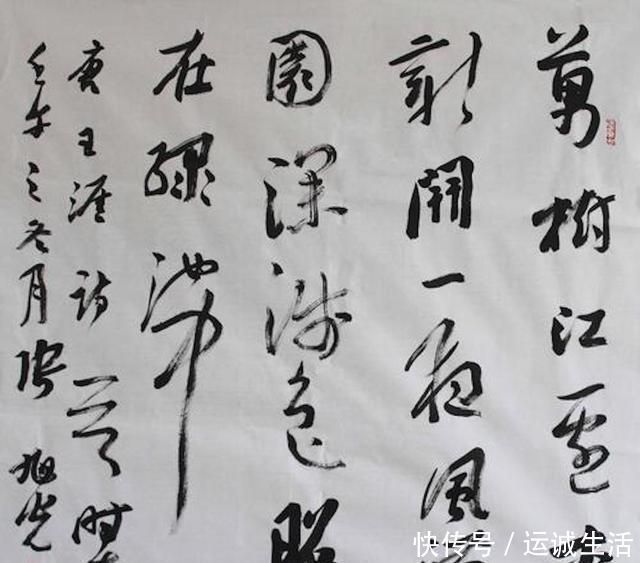 萬樹江邊
新開一夜風
園深淺色照
在綠波中
唐王涯詩一首時
壬午之冬月張旭光
快传号 / 运诚生活